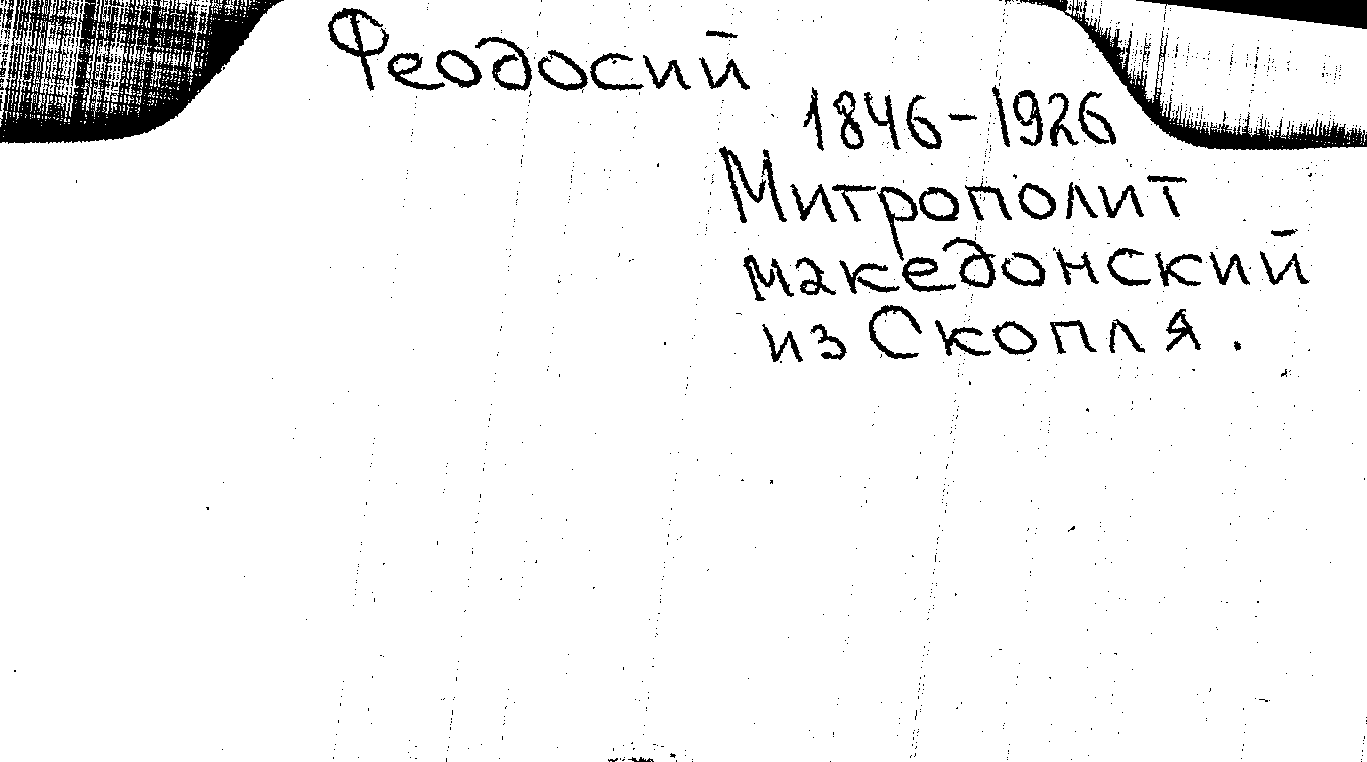 Феодосий
1846-1926
Митрополит
македонский
из Скопля.